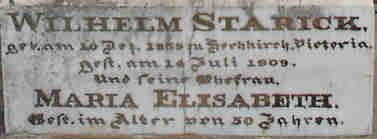 WILHELM STARICK,
geb. am 10 Dez. 1858 zu Hochkirch, Victoria,
gest. am 14 Juli 1909.
Und seine Ehefrau.
MARIA ELISABETH.
Gest. im Alter von 50 Jahren.